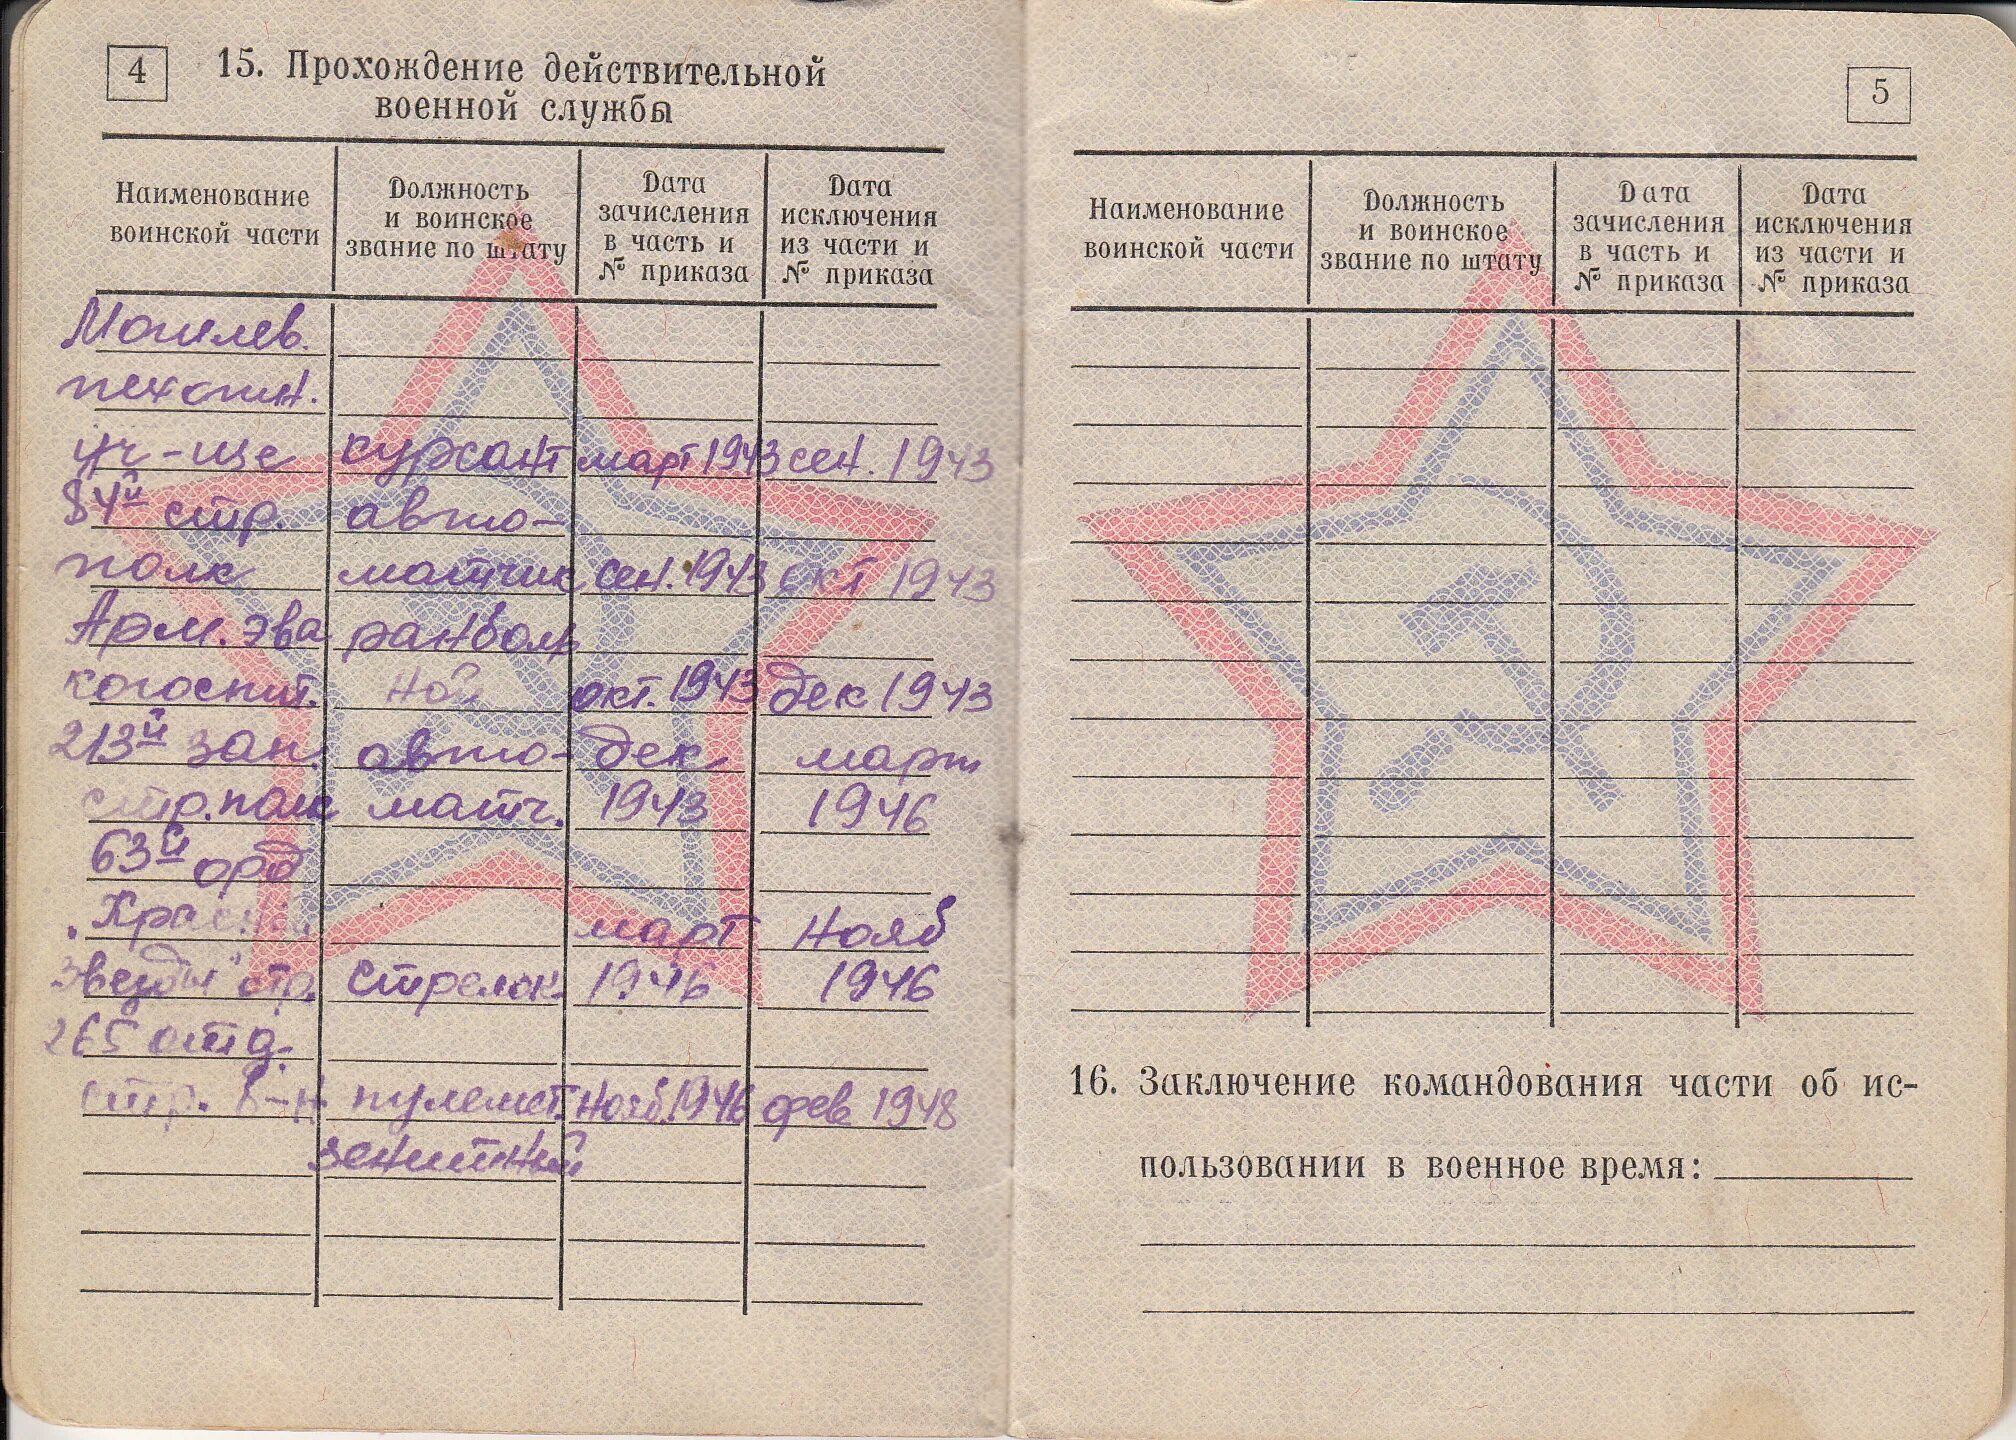 4
15. Прохождение действительной
военной службы
Наименование
воинской части
Должность
и воинское
звание по штату
Дата
зачисления
в часть и
№ приказа
Дата
исключения
из части и
№ приказа
Могилев.
пехотн.
уч-ще курсант март 1943 сен. 1943
84й стр. авто-
полк матчик сен. 1943 окт 1943
Арм. эва ранболь
когоспит. ной окт. 1943 дек 1943
213й зап. авто- дек март
стр. полк матч. 1943 1946
63й орд
"Красной март Нояб
Звезды" стр. Стрелок 1946 1946
265 отд.
стр. б-н пулемет. Нояб. 1946 фев 1948
зенитный
5
Наименование
воинской части
Должность
и воинское
звание по штату
Дата
зачисления
в часть и
№ приказа
Дата
исключения
из части и
№ приказа
16. Заключение командования части об ис-
пользовании в военное время: